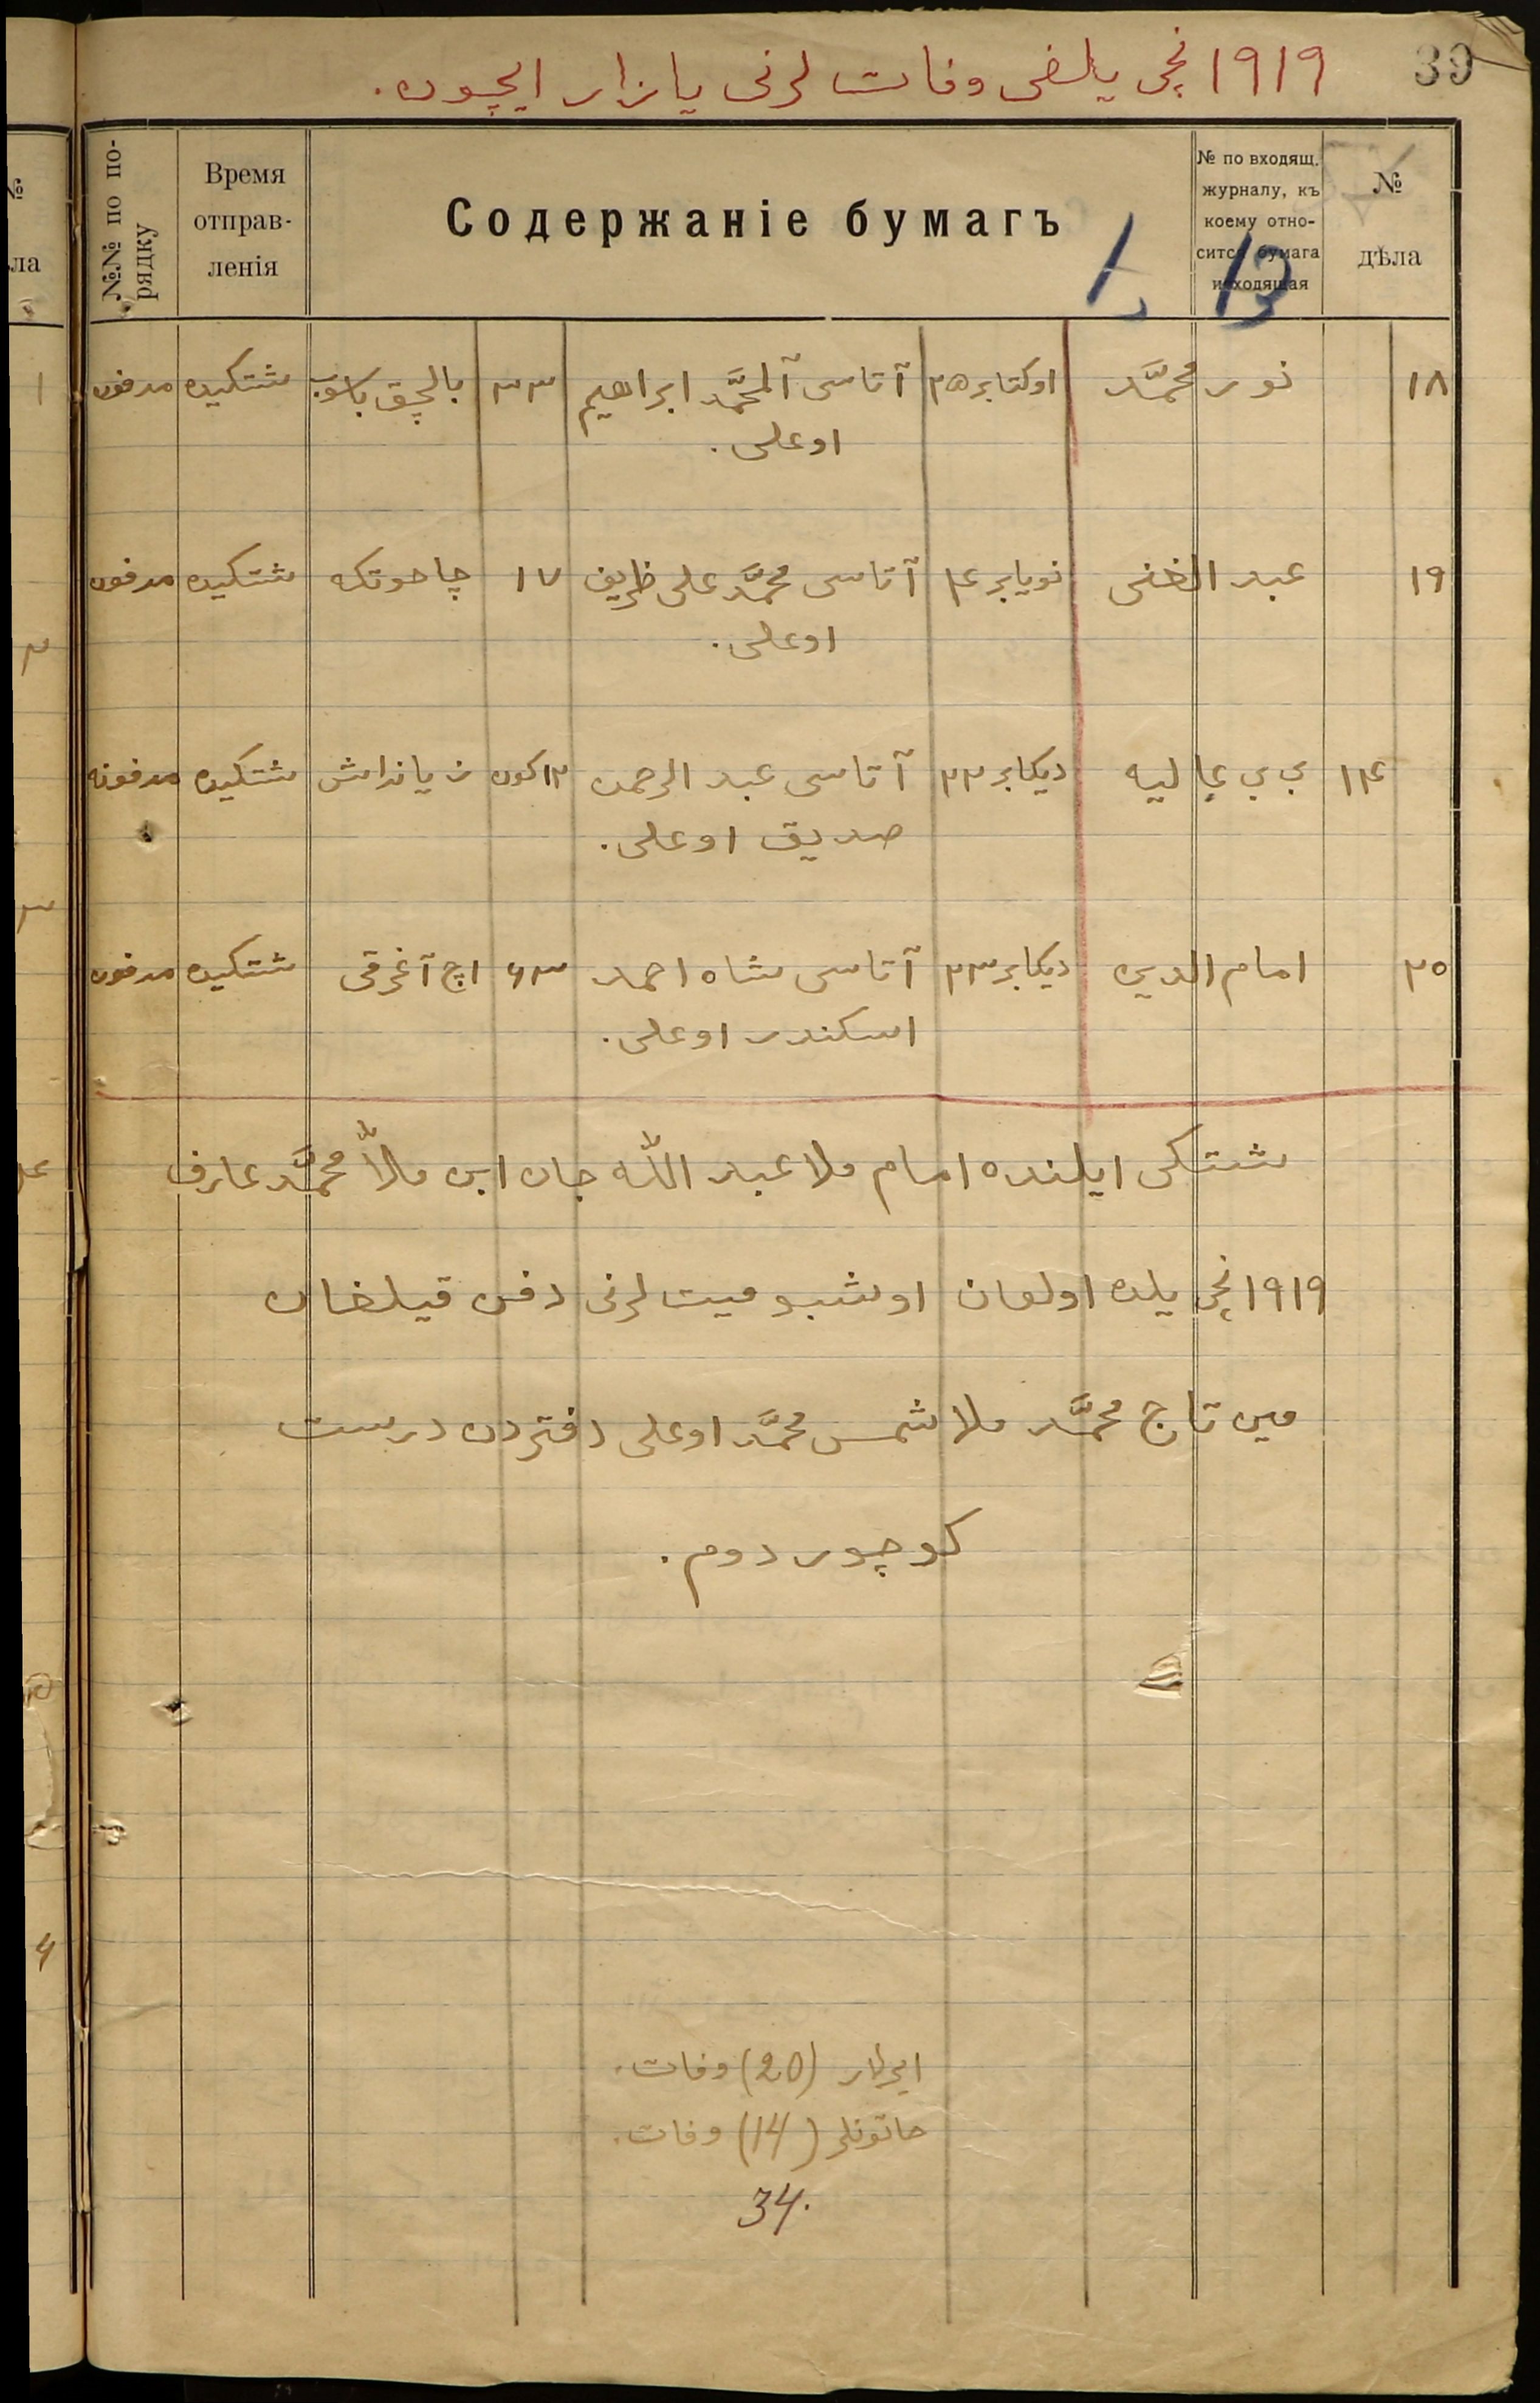 39
۱۹۱۹ نچی یلغی وفات لرنی یازار ایچون.
№№ по по-
рядку
Время
отправ-
ленія
Содержаніе бумагъ
№ по входящ.
журналу, къ
коему отно-
сится бумага
исходящая
№
дѣла
۱۸ نور محمّد اوکتابر ۲۵ آتاسی آلمحمّد ابراهیم ۳۳ بالچق باسوب شتکیده مدفون
اوغلی.
۱۹ عبد الغنی نویابر ۴ آتاسی محمّد علی ظریف ۱۷ چاحوتکه شتکیده مدفون
اوغلی.
۱۴ بی بی عالیه دیکابر ۲۲ آتاسی عبد الرحمن ۱۲ کون یاندامش شتکیده مدفونه
صدیق اوغلی.
۲۰ امام الدین دیکابر ۲۳ آتاسی شاه احمد ۶۳ اچ آغرقی شتکیده مدفون
اسکندر اوغلی.
شتکی ایلنده امام ملا عبد اللّه جان ابن ملاّ محمّد عارف
۱۹۱۹ نچی یلده اولغان اوشبو میت لرنی دفن قیلغان
مین تاج محمّد ملا شمس محمّد اوغلی دفتردن درست
کوچوردوم.
ایرلار (20) وفات.
خاتونلر (14) وفات.
34.